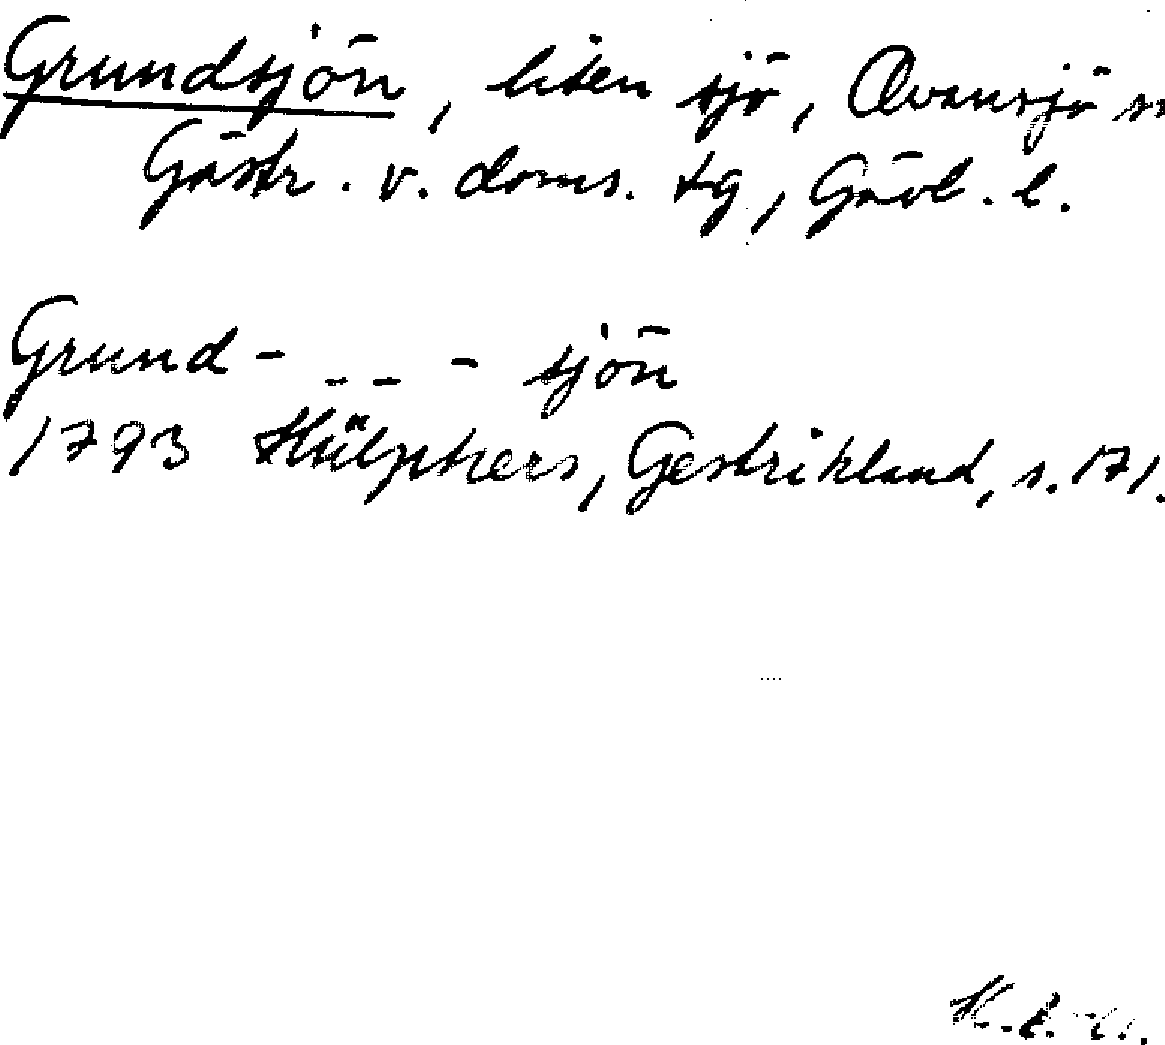 Grundsjön, liten sjö, Ovansjö sn
Gästr. v. doms. tg, Gävl. l.
Grund- - - - sjön
1793 Hülphers, Gestrikland, s. 171.